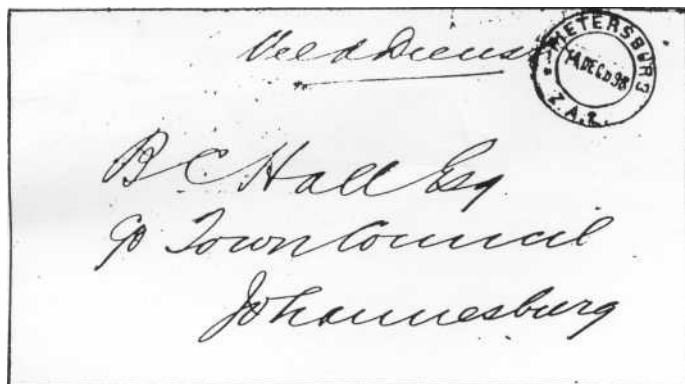 Velddienst
PIETERSBURG
14 DEC 98
Z.A.R.
B C Hall Esq
c/o Town Council
Johannesburg